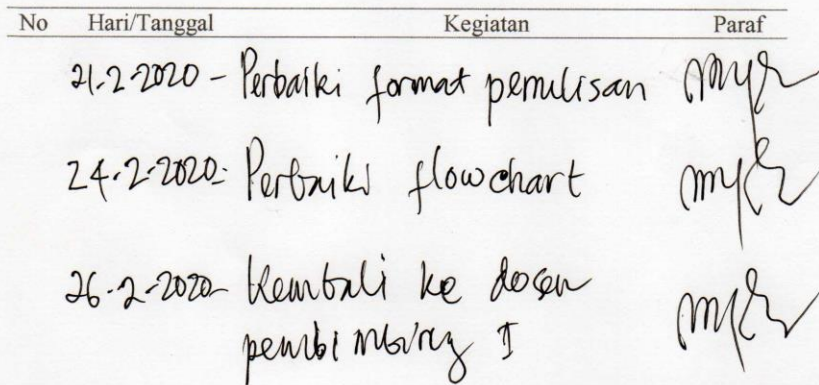 No Hari/Tanggal Kegiatan Paraf
21-2-2020 - Perbaiki format penulisan
24-2-2020 - Perbaiki flowchart
26-2-2020 - Kembali ke dosen
pembimbing I